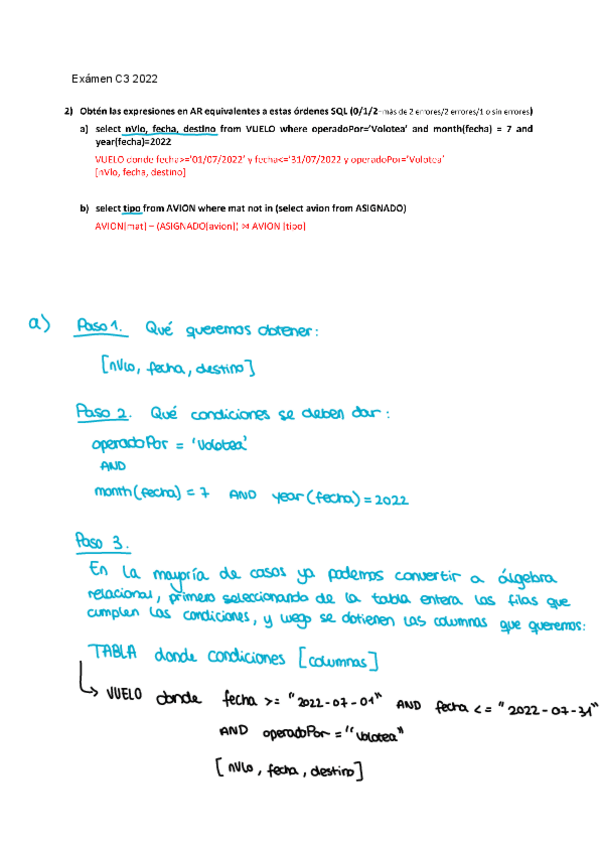 Exámen C3 2022
2) Obtén las expresiones en AR equivalentes a estas órdenes SQL (0/1/2-más de 2 errores/2 errores/1 o sin errores)
a) select nVlo, fecha, destino from VUELO where operadoPor='Volotea' and month(fecha) = 7 and
year(fecha)=2022
VUELO donde fecha>='01/07/2022' y fecha<='31/07/2022 y operadoPor='Volotea'
[nVlo, fecha, destino]
b) select tipo from AVION where mat not in (select avion from ASIGNADO)
AVION[mat] – (ASIGNADO[avion]) ⋈ AVION [tipo]
a) Paso 1. Qué queremos obtener:
[nVlo, fecha, destino]
Paso 2. Qué condiciones se deben dar:
operadoPor = 'Volotea'
AND
month(fecha) = 7 AND year(fecha) = 2022
Paso 3.
En la mayoría de casos ya podemos convertir a álgebra
relacional, primero seleccionando de la tabla entera las filas que
cumplen las condiciones, y luego se obtienen las columnas que queremos:
TABLA donde condiciones [columnas]
↳ VUELO donde fecha >= "2022-07-01" AND fecha <= "2022-07-31"
AND operadoPor = "Volotea"
[nVlo, fecha, destino]